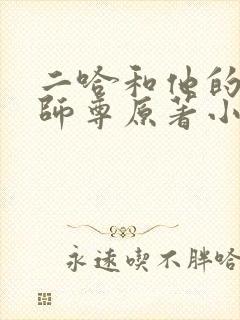 二哈和他的
師尊原著小
永遠喫不胖哈